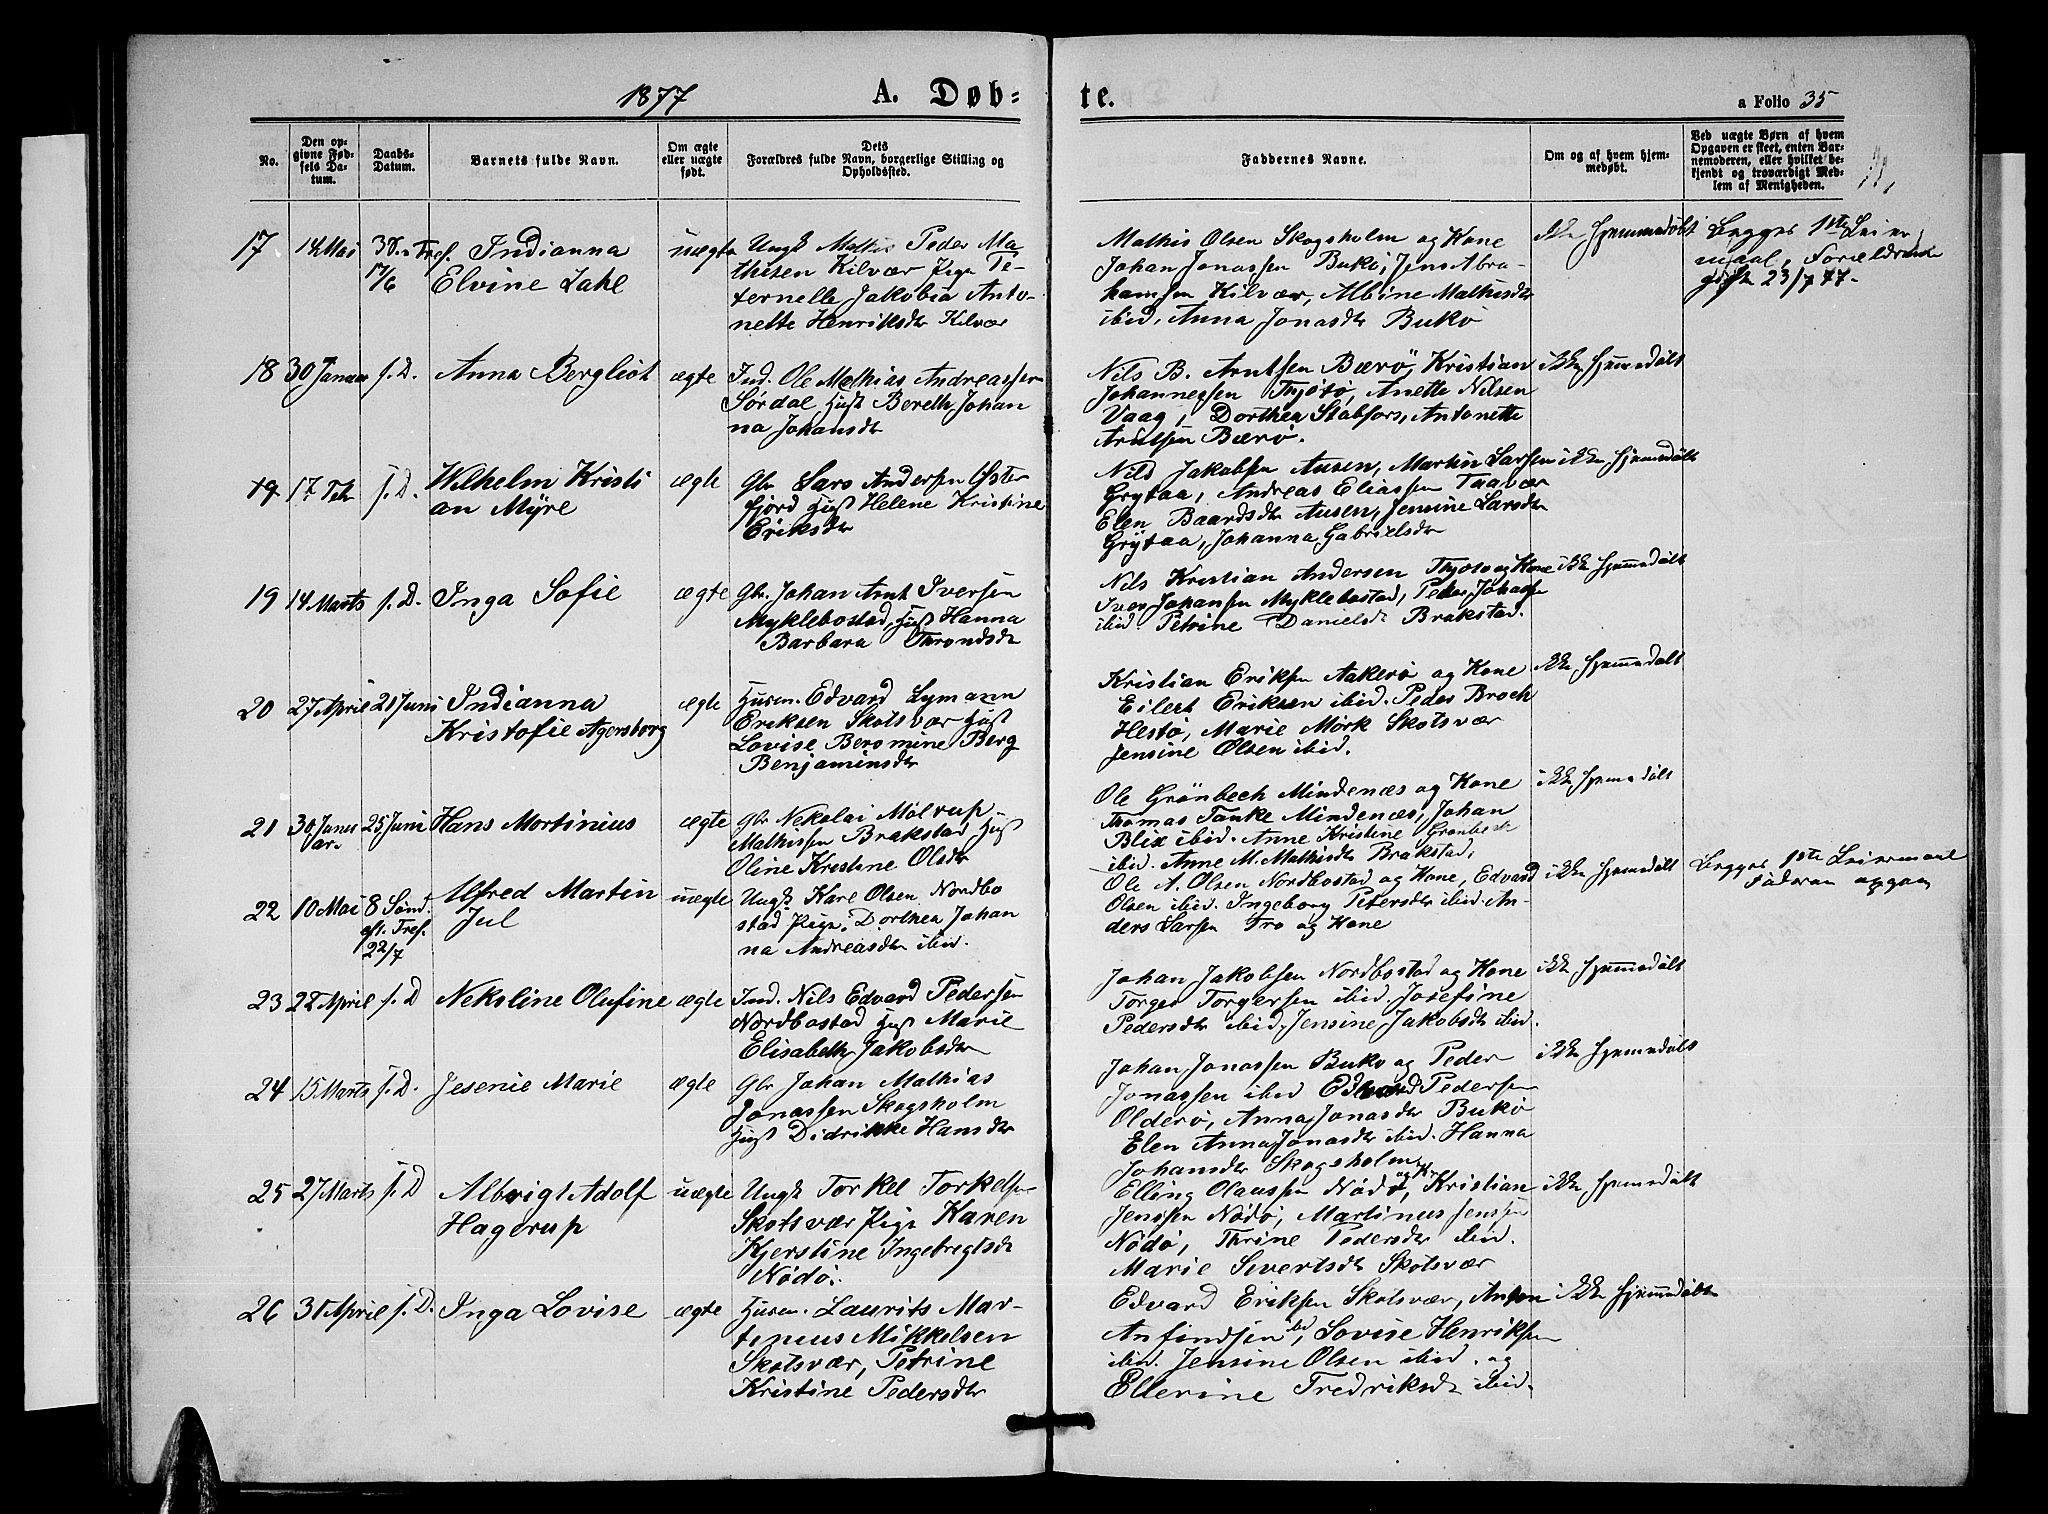 1877 A. Døb-
te. a Folio 35
No.
Den op-
givne Fød-
sels Da-
tum.
Daabs-
Datum.
Barnets fulde Navn.
Om ægte
eller uægte
født.
Dets
Forældres fulde Navn, borgerlige Stilling og
Opholdssted.
Faddernes Navne.
Om og af hvem hjem-
medøbt.
Ved uægte Børn af hvem
Opgaven er skeet, enten Bar-
nemoderen, eller hvilket be-
kjendt og troværdigt Med-
lem af Menigheden.
17 14 Mai 3 S. e. Tref. 17/6
Indianna
Elvine Zahl
uægte
Ungk Mathis Peder Ma-
thisen Kilvær Pige Pe-
ternelle Jakobia Anto-
nette Henriksdtr Kilvær
Mathis Olsen Skogsholm og Kone
Johan Jonassen Bukø, Jens Abra-
hamsen Kilvær, Albine Mathisdtr
ibid, Anna Jonasdtr Bukø
ikke hjemmedøbt
Begges 1ste Leier-
maal, Forældrene
gift 23/7 77.
18 30 Januar s. D.
Anna Bergliot
ægte
Ind. Ole Mathias Andreassen
Sørdal Hust Bereth Johan
na Johansdtr
Nils B. Arntsen Bærø, Kristian
Johannessen Thjøtø, Anette Nilsen
Vaag, Dorthea Stabfors, Antonette
Arntsen Bærø.
ikke hjemmedøbt
19 17 Feb s. D.
Wilhelm Kristi
an Myre
ægte
Gbr Lars Andersen Øster
fjord Hust Helene Kristine
Eriksdtr
Nils Jakobsen Ausen, Martin Larsen
Grytaa, Andreas Eliassen Traavær
Elen Baardsdtr Ausen, Jensine Larsdtr
Grytaa, Johanna Gabrielsdtr
ikke hjemmedøbt
19 14 Marts s. D.
Inga Sofie
ægte
Gbr. Johan Arnt Iversen
Myklebostad, Hust Hanna
Barbara Throndsdtr
Nils Kristian Andersen Thjøtø og Kone
Iver Johansen Myklebostad, Peder Johansen
ibid. Petrine Danielsdtr Brakstad.
ikke hjemmedøbt
20 27 April 21 Juni
Indianna
Kristofie Agersborg
ægte
Husm. Edvard Lymann
Eriksen Skotsvær Hust
Lovise Beromine Berg
Benjaminsdtr
Kristian Eriksen Aakerø og Kone
Eilert Eriksen ibid. Peder Broch
Hestø, Marie Mørk Skotsvær
Jensine Olsen ibid.
ikke hjemmedøbt
21 30 Janu
ar. 25 Juni
Hans Mortinius
ægte
Gbr Nekolai Moltrup
Mathissen Brakstad Hust
Oline Kristine Olsdtr
Ole Grønbech Mindenæs og Kone
Thomas Tanke Mindenæs, Johan
Blix ibid. Anne Kristine Grønbech
ibid. Anne M. Mathisdtr Brakstad,
ikke hjemmedøbt
22 10 Mai 8 Sønd.
eft. Tref.
22/7
Alfred Martin
Jul
uægte
Ungk Karl Olsen Nordbo
stad Pige. Dorthea Johan
na Andreasdtr ibid.
Ole A. Olsen Nordbostad og Kone, Edvard
Olsen ibid. Ingeborg Petersdtr ibid. An-
ders Larsen Tro og Kone
ikke hjemmedøbt
Begges 1ste Leiermaal
23 28 April s. D
Nekoline Olufine
ægte
Ind. Nils Edvard Pedersen
Nordbostad Hust Marie
Elisabeth Jakobsdtr
Johan Jakobsen Nordbostad og Kone
Torger Torgersen ibid. Josefine
Pedersdtr ibid, Jensine Jakobsdtr ibid.
ikke hjemmedøbt
24 15 Marts s. D.
Jesenie Marie
ægte
Gbr Johan Mathias
Jonassen Skogsholm
Hust Didrikke Hansdtr
Johan Jonassen Bukø og Peder
Jonassen ibid Edvard Pedersen
Olderø, Anna Jonasdtr Bukø
Elen Anna Jonasdtr ibid. Hanna
Johansdtr Skogsholm
ikke hjemmedøbt
25 27 Marts s. D
Albrigt Adolf
Hagerup
uægte
Ungk Torkel Torkelsen
Skotsvær Pige Karen
Kjerstine Ingebregtsdtr
Nødø.
Elling Olaussen Nødø, og K. Kristian
Jenssen Nødø, Martinus Jenssen
Nødø, Thrine Pedersdtr ibid.
Marie Sivertsdtr Skotsvær
ikke hjemmedøbt
26 30 April s. D.
Inga Lovise
ægte
Husm. Laurits Mar-
tinius Mikkelsen
Skotsvær, Petrine
Kristine Pedersdtr
Edvard Eriksen Skotsvær, Anton
Anfindsen ibid, Lovise Henriksen
ibid. Jensine Olsen ibid. og
Ellerine Fredriksdtr ibid.
ikke hjemmedøbt